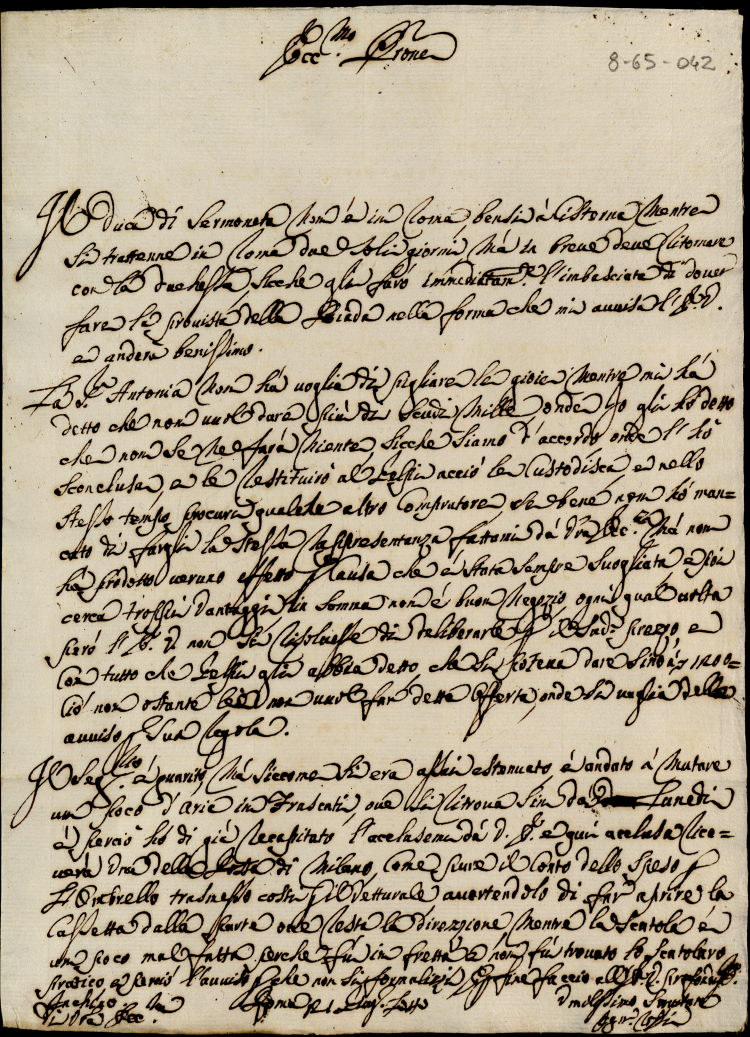 Ecc.mo Prone
8-65-042
Il Duca di Sermoneta non è in Roma, bensì à Cisterna, mentre
si trattenne in Roma due soli giorni, mà in breve deve ritornare
con la duchessa, sicche gli farò immediatam.e l'imbasciata di dover
fare la provista della Biada nella forma che mi avvisa l' E. V.
e anderà benissimo.
La S.ra Antonia non hà voglia di pigliare le gioie, mentre mi hà
detto che non vuol dare più di scudi mille, onde io gli hò detto
che non se ne farà niente, sicche siamo d'accordo, onde l' hò
sconclusa, e le restituirò al acciò le custodisca, e nello
stesso tempo procuri qualche altro compratore, se bene non hò man=
cato di fargli la stessa rappresentanza fattami dà V.ra Ecc.za mà non
hà prodotto veruno effetto p causa che è stata sempre svogliata e poi
cerca troppi vantaggi, in somma non è buon negozio, ogni qual volta
però l' E. V. non si risolvesse di deliberarle p il sud.o prezzo, e
con tutto che gli abbia detto che si poteva dare sino à 1200=
ciò non ostante lei non vuol far detta offerta, onde si vaglia dell'
avviso p sua regola.
Il è guarito, mà siccome si era assai estenuato, è andato à mutare
un poco d'aria in Frascati, ove si ritrova sin da Lunedì
e perciò hò di già recapitato l'acclusemi dà V. E. e qui acclusa rice=
verà Una della Posta di Milano, come pure il Conto dello Speso p
L'Ombrello trasmesso costì p il Vetturale avvertendolo di far aprire la
Cassetta dalla parte ove resta la direzione, mentre la scatola è
un poco mal fatta, perche fù in fretta, e non fù trovato lo scatolaro
pratico, e perciò l'avviso p che non si formalizzi, e p fine faccio all' E. V. profondiss.o
inchino
Di V.ra Ecc.za
Roma